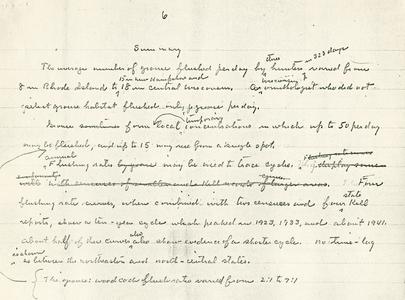 6
Summary
three in 323 days
The average number of grouse flushed per day by hunters varied from
15 in New Hampshire and
8 in Rhode Island to 18 in central Wisconsin. A Wisconsin ornithologist who did not
select grouse habitat flushed only grouse per day.
temporary
Grouse sometimes form local concentrations in which up to 50 per day
may be flushed, and up to 15 may rise from a single spot.
annual
Flushing rates may be used to trace cycles.
Four
state
flushing rate curves, when combined with two censuses and four kill
reports, show a ten-year cycle which peaked in 1923, 1933, and about 1941.
also
About half of the curves also show evidence of a shorter cycle. No time-lag
is shown
as between the northeastern and north-central states.
The grouse: woodcock flush ratio varied from 2:1 to 7:1